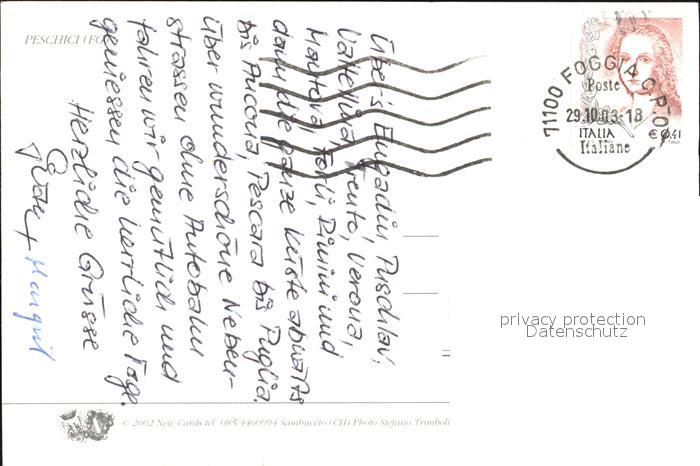 PESCHICI (FG)
Über's Engadin, Puschlav,
Valtellina, Trento, Verona,
Mantova, Forli, Rimini und
dann die ganze Küste abwärts
bis Ancona, Pescara bis Puglia.
Über wunderschöne Neben-
strassen ohne Autobahn
fahren wir gemütlich und
geniessen die herrliche Tage.
Herzliche Grüsse
+ Margrit
71100 FOGGIA C.P.O.
Poste
29.10.03-18
ITALIA
€ 0,41
Italiane
privacy protection
Datenschutz
© 2002 New Cards tel. 085/4460994 Sambuceto (CH) Photo Stefano Trimboli